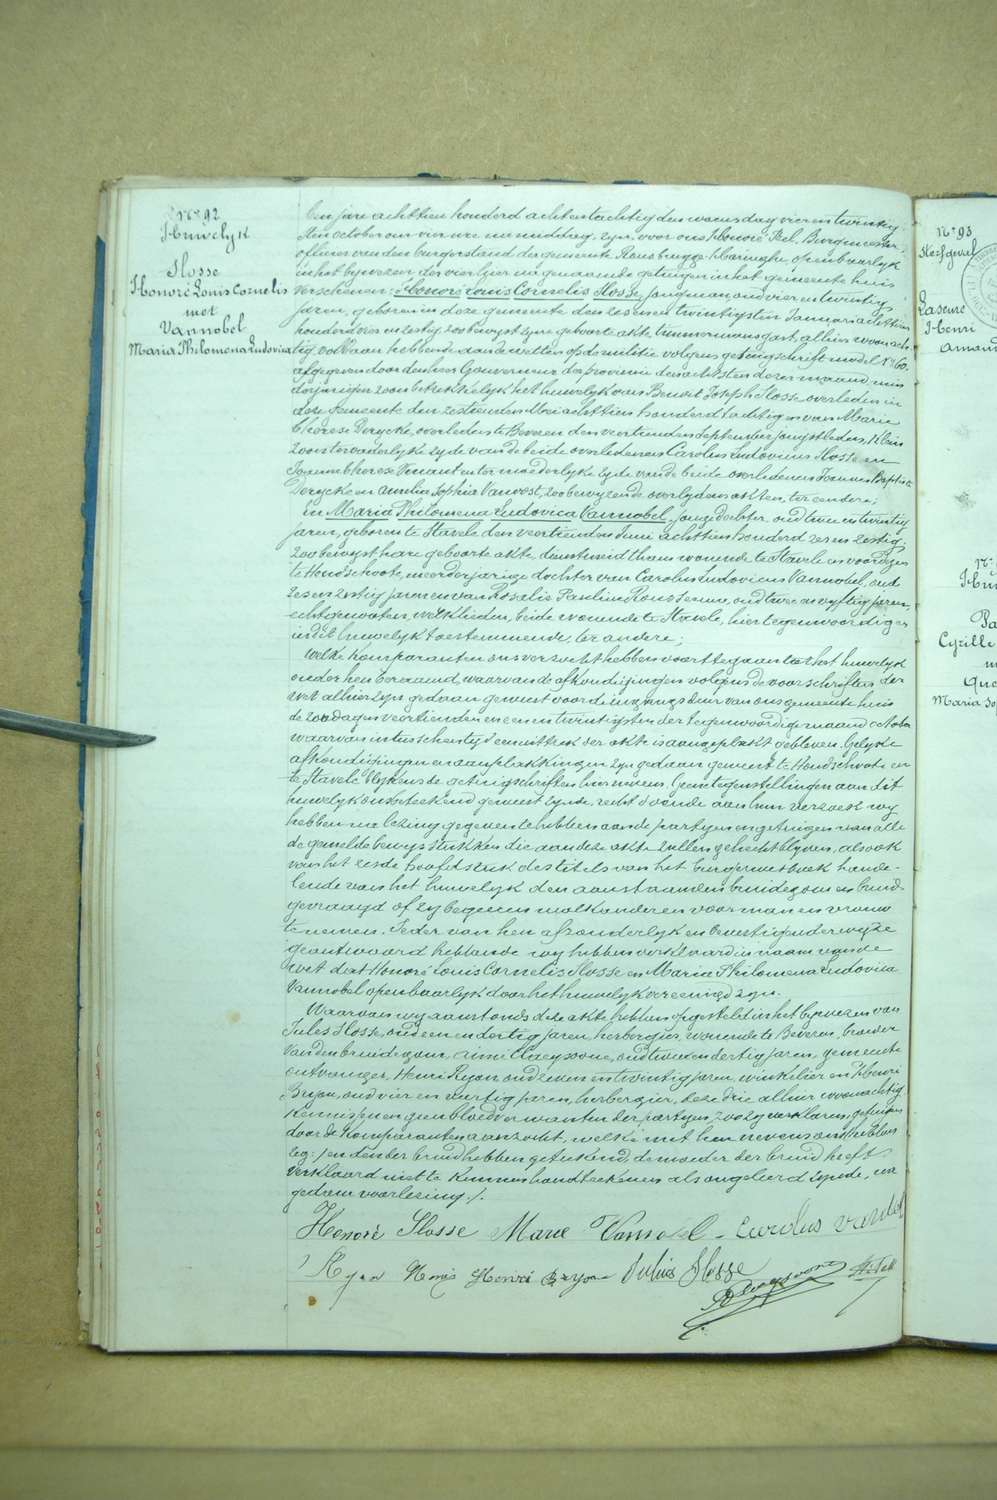 N° 92
Huwelyk
Slosse
Honoré Louis Cornelis
met
Vannobel
Maria Philomena Ludovica
In jare achttien honderd achtentachtig den woensdag vieren twintig
sten october om vier ure namiddag, zyn voor ons Honoré Bel, Burgmeester
officier van den burgerstand der gemeente Rousbrugge-Haringhe, openbaarlyk
in het bywezen der vier hier na genaamde getuigen in het gemeente huis
verschenen: Honoré Louis Cornelis Slosse, jongman, oud vier en twintig
jaren, geboren in deze gemeente den zes en twintigsten Januari achttien
honderd vier en zestig zoo bewyst zyne geboorte akte, timmermansgast, alhier woonach-
tig, voldaan hebbende aan de wetten op de militie volgens getuigschrift model N° 60.
afgegeven door den heer Gouverneur der provincie den achtsten dezer maand, min
derjarigen zoon betrekkelyk het huwelyk van Benoit Joseph Slosse overleden in
deze gemeente den zestienden Mei achttien honderd tachtig en van Marie
Thérèse Derycke, overleden te Beveren den veertienden September jongstleden, klein
zoon ter vaderlyke zyde van de beide overledenen Carolus Ludovicus Slosse en
Joanna Therese en ter moederlyke zyde van de beide overledenen Joannes Baptiste
Derycke en Amelia Sophia Vanvost, zoo bewyzen de overlydens akten, ter eendere;
en Maria Philomena Ludovica Vannobel, jonge dochter, oud twee en twintig
jaren, geboren te Stavele den veertienden Juni achttien honderd zes en zestig,
zoo bewyst hare geboorte akte, dienstmeid thans wonende te Stavele en voordezen
te Hondschoote, meerderjarige dochter van Carolus Ludovicus Vannobel, oud
zes en zestig jaren en van Rosalie Pauline Rousseeuw, oud twee en vyftig jaren,
echtgenooten, werklieden, beide wonende te Stavele, hier tegenwoordig en
in dit huwelyk toestemmende, ter andere;
Welke komparanten ons verzocht hebben voort te gaan tot het huwelyk
onder hen beraamd, waarvan de afkondigingen volgens de voorschriften der
wet alhier zyn gedaan geweest voor de ingangsdeur van ons gemeente huis
de zondagen veertienden en een en twintigsten der tegenwoordige maand october
waarvan intusschentyd een uittreksel der akte is aangeplakt gebleven. Gelyke
afkondigingen en aanplakkingen zyn gedaan geweest te Hondschoote en
te Stavele blykens de getuigschriften hiernevens. Geene tegenstellingen aan dit
huwelyk ons beteekend geweest zynde, recht doende aan hun verzoek wy
hebben na lezing gegeven te hebben aan de partyen en getuigen van alle
de gemelde bewysstukken die aan deze akte zullen gehecht blyven, alsook
van het zesde hoofdstuk des titels van het burger wetboek hande-
lende van het huwelyk den aanstaanden bruidegom en bruid
gevraagd of zy begeeren malkanderen voor man en vrouw
te nemen. Ieder van hen afzonderlyk en bevestigenderwyze
geantwoord hebbende wy hebben verklaard in naam van de
wet dat Honoré Louis Cornelis Slosse en Maria Philomena Ludovica
Vannobel openbaarlyk door het huwelyk vereenigd zyn.
Waarvan wy aanstonds deze akte hebben opgesteld in het bywezen van
Jules Slosse, oud een en dertig jaren, herbergier, wonende te Beveren, broeder
van den bruidegom, Aimé Claeyssoone, oud twee en dertig jaren, gemeente
ontvanger, Henri Ryon oud zeven en twintig jaren, winkelier en Henri
Bryon, oud vier en dertig jaren, herbergier, deze drie alhier woonachtig
kennissen en geen bloedverwanten der partyen, zoo zy verklaren, getuigen
door de komparanten aanzocht, welke met hen nevens ons hebben
en den der bruid hebben geteekend, de moeder der bruid heeft
verklaard niet te kunnen handteekenen als ongeleerd zynde, na
gedane voorlezing ./.
Honoré Slosse Marie Vannobel Carolus
Ryon Henri Henri Bryon Julius Slosse
N° 93
Sterfgeval
Laseure
Henri
Amand
N°
Huw
Pa
Cyrille
m
Que
Maria So